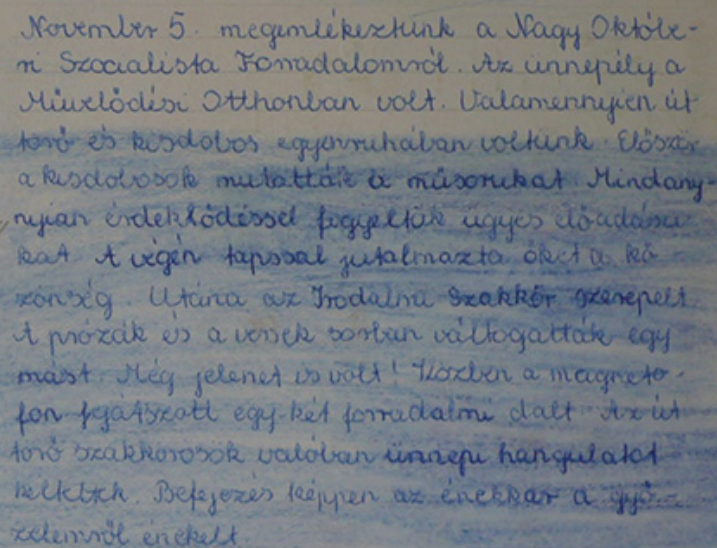 November 5. megemlékeztünk a Nagy Októbe-
ri Szocialista Forradalomról. Az ünnepély a
Müvelödési Otthonban volt. Valamennyien út
törő és kisdobos egyenruhában voltunk. Először
a kisdobosok mutatták a müsorukat Mindany-
nyian érdeklődéssel figyeltük ügyes előadásu
kat A végén tapssal jutalmazta őket a kö
zönség. Utána az Irodalmi Szakkör szerepelt.
A prózák és a versek sorban váltogatták egy
mást. Még jelenet is volt! Közben a magneto-
fon lejátszott egy-két forradalmi dalt. Az út
törő szakkörösök valóban ünnepi hangulatot
keltettek. Befejezés képpen az énekkar a győ-
zelemről énekelt.